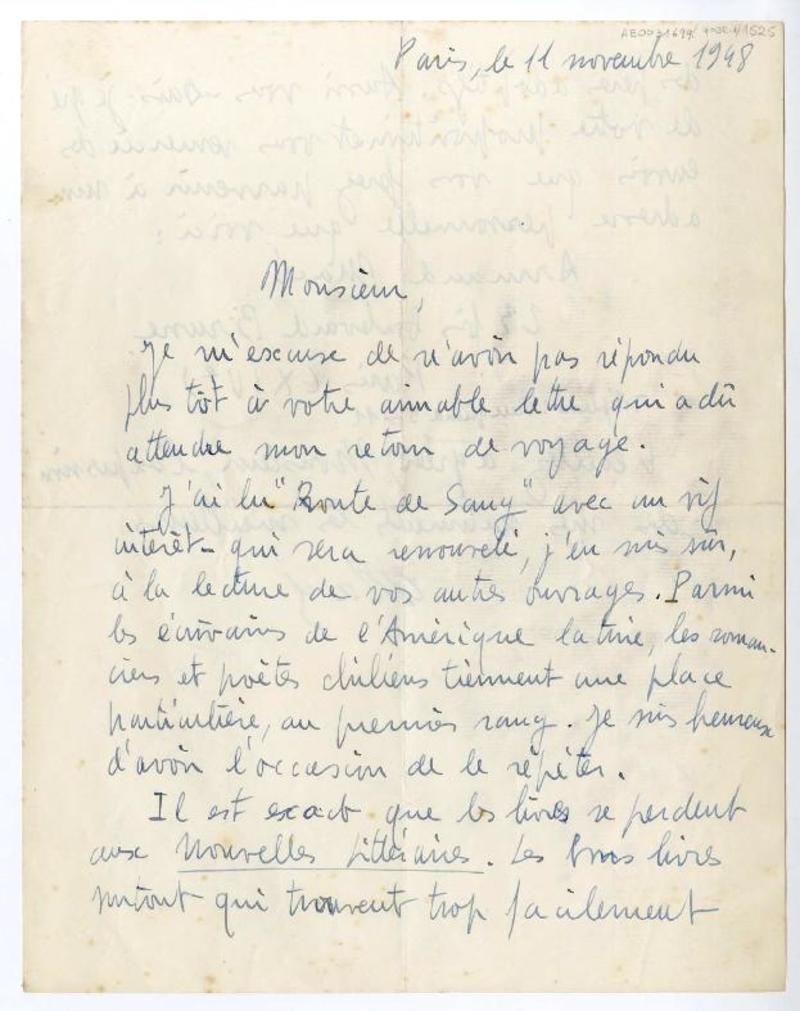 Paris, le 11 novembre 1948
Monsieur,
Je m'excuse de n'avoir pas répondu
plus tôt à votre aimable lettre qui a dû
attendre mon retour de voyage.
J'ai lu "Route de Sang" avec un vif
intérêt - qui sera renouvelé, j'en suis sûr,
à la lecture de vos autres ouvrages. Parmi
les écrivains de l'Amérique latine, les roman-
ciers et poètes chiliens tiennent une place
particulière, au premier rang. Je suis heureux
d'avoir l'occasion de le répéter.
Il est exact que les livres se perdent
aux Nouvelles Littéraires. Les bons livres
surtout qui trouvent trop facilement